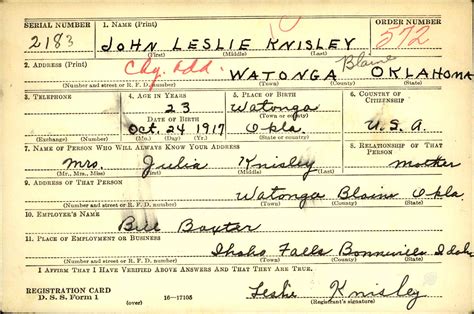 SERIAL NUMBER 1. NAME (Print) ORDER NUMBER
2183 JOHN LESLIE KNISLEY 572
(First) (Middle) (Last)
2. ADDRESS (Print)
Chg. Add. WATONGA Blaine OKLAHOMA
(Number and street or R. F. D. number) (Town) (County) (State)
3. TELEPHONE 4. AGE IN YEARS 5. PLACE OF BIRTH 6. COUNTRY OF CITIZENSHIP
23 Watonga
DATE OF BIRTH (Town or county)
Oct. 24 1917 Okla. U.S.A.
(Exchange) (Number) (Mo.) (Day) (Yr.) (State or country)
7. NAME OF PERSON WHO WILL ALWAYS KNOW YOUR ADDRESS 8. RELATIONSHIP OF THAT PERSON
Mrs. Julia Knisley mother
(Mr., Mrs., Miss) (First) (Middle) (Last)
9. ADDRESS OF THAT PERSON
Watonga Blaine Okla.
(Number and street or R. F. D. number) (Town) (County) (State)
10. EMPLOYER'S NAME
Bill Baxter
11. PLACE OF EMPLOYMENT OR BUSINESS
Idaho Falls Bonneville Idaho
(Number and street or R. F. D. number) (Town) (County) (State)
I AFFIRM THAT I HAVE VERIFIED ABOVE ANSWERS AND THAT THEY ARE TRUE.
REGISTRATION CARD Leslie Knisley
D. S. S. Form 1 (over) 16—17105 (Registrant's signature)